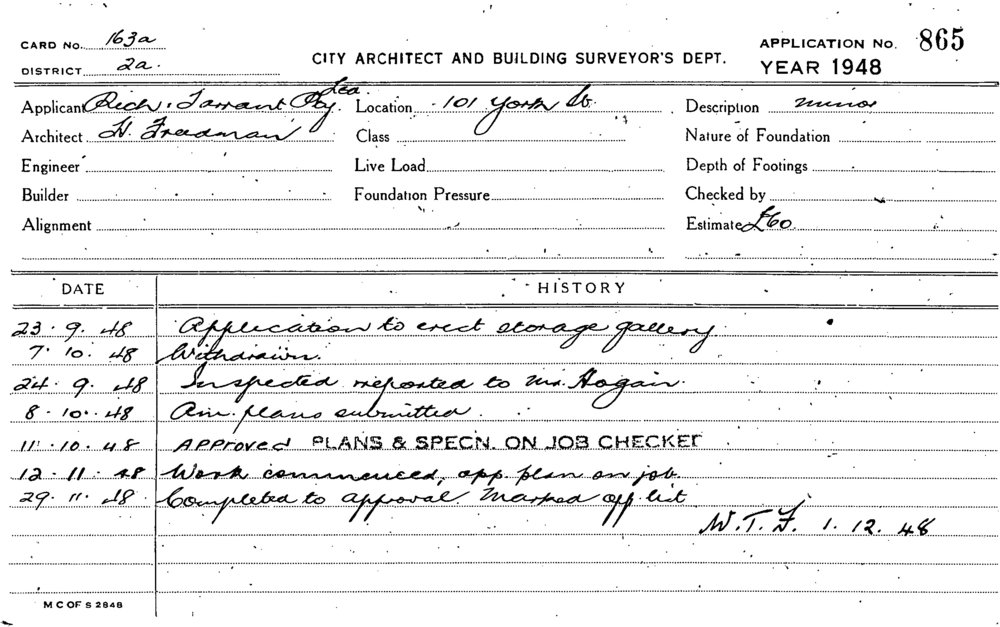 CARD No. 163a
DISTRICT 2a.
CITY ARCHITECT AND BUILDING SURVEYOR'S DEPT.
APPLICATION No. 865
YEAR 1948
Applicant Rich. Tarrant Pty. Ltd. Location 101 York St. Description minor
Architect H. Freedman Class Nature of Foundation
Engineer Live Load Depth of Footings
Builder Foundation Pressure Checked by
Alignment Estimate £60
DATE HISTORY
23. 9. 48 Application to erect storage gallery
7. 10. 48 Withdrawn.
24. 9. 48 Inspected reported to Mr. Hogan.
8. 10. 48 Am. plans submitted.
11. 10. 48 Approved PLANS & SPECN. ON JOB CHECKED
12. 11. 48 Work commenced, app. plan on job.
29. 11. 48. Completed to approval. Marked off list
W.T.F. 1. 12. 48
M C OF S 2848